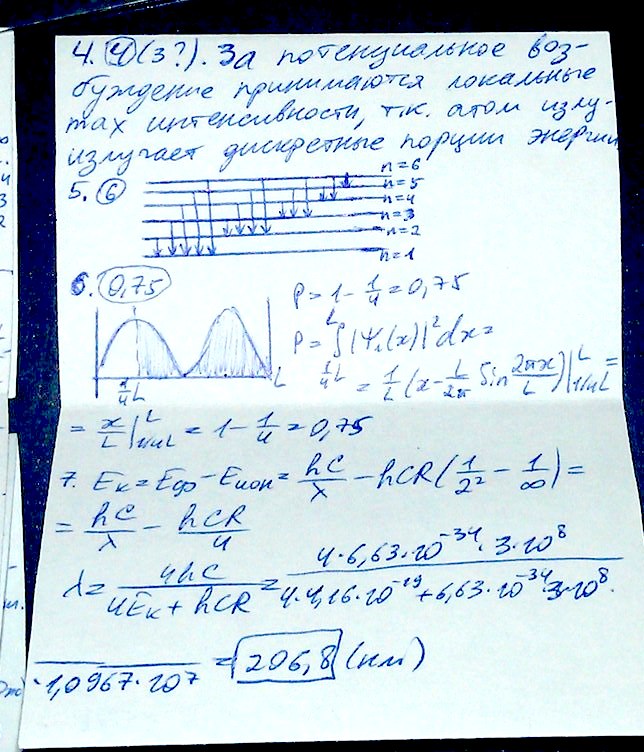 4. 4 (3?). За потенциальное воз-
буждение принимаются локальные
max интенсивности, т.к. атом излу-
излучает дискретные порции энергии
n=6
5. 6 n=5
n=4
n=3
n=2
n=1
6. 0,75
P = 1 - 1/4 = 0,75
P = ∫ |Ψ₂(x)|² dx =
L
1/4 L
= 1/L (x - L/2π Sin 2πx/L) |ᴸ 1/4L =
1/4 L L
= x/L |ᴸ 1/4L = 1 - 1/4 = 0,75
7. Eк = Eф - Eион = hC/λ - hCR (1/2² - 1/∞) =
= hC/λ - hCR/4
λ = 4hC/(4Eк + hCR) = 4·6,63·10⁻³⁴·3·10⁸
4·4,16·10⁻¹⁹ + 6,63·10⁻³⁴·3·10⁸·
·1,0967·10⁷ = 206,8 (нм)